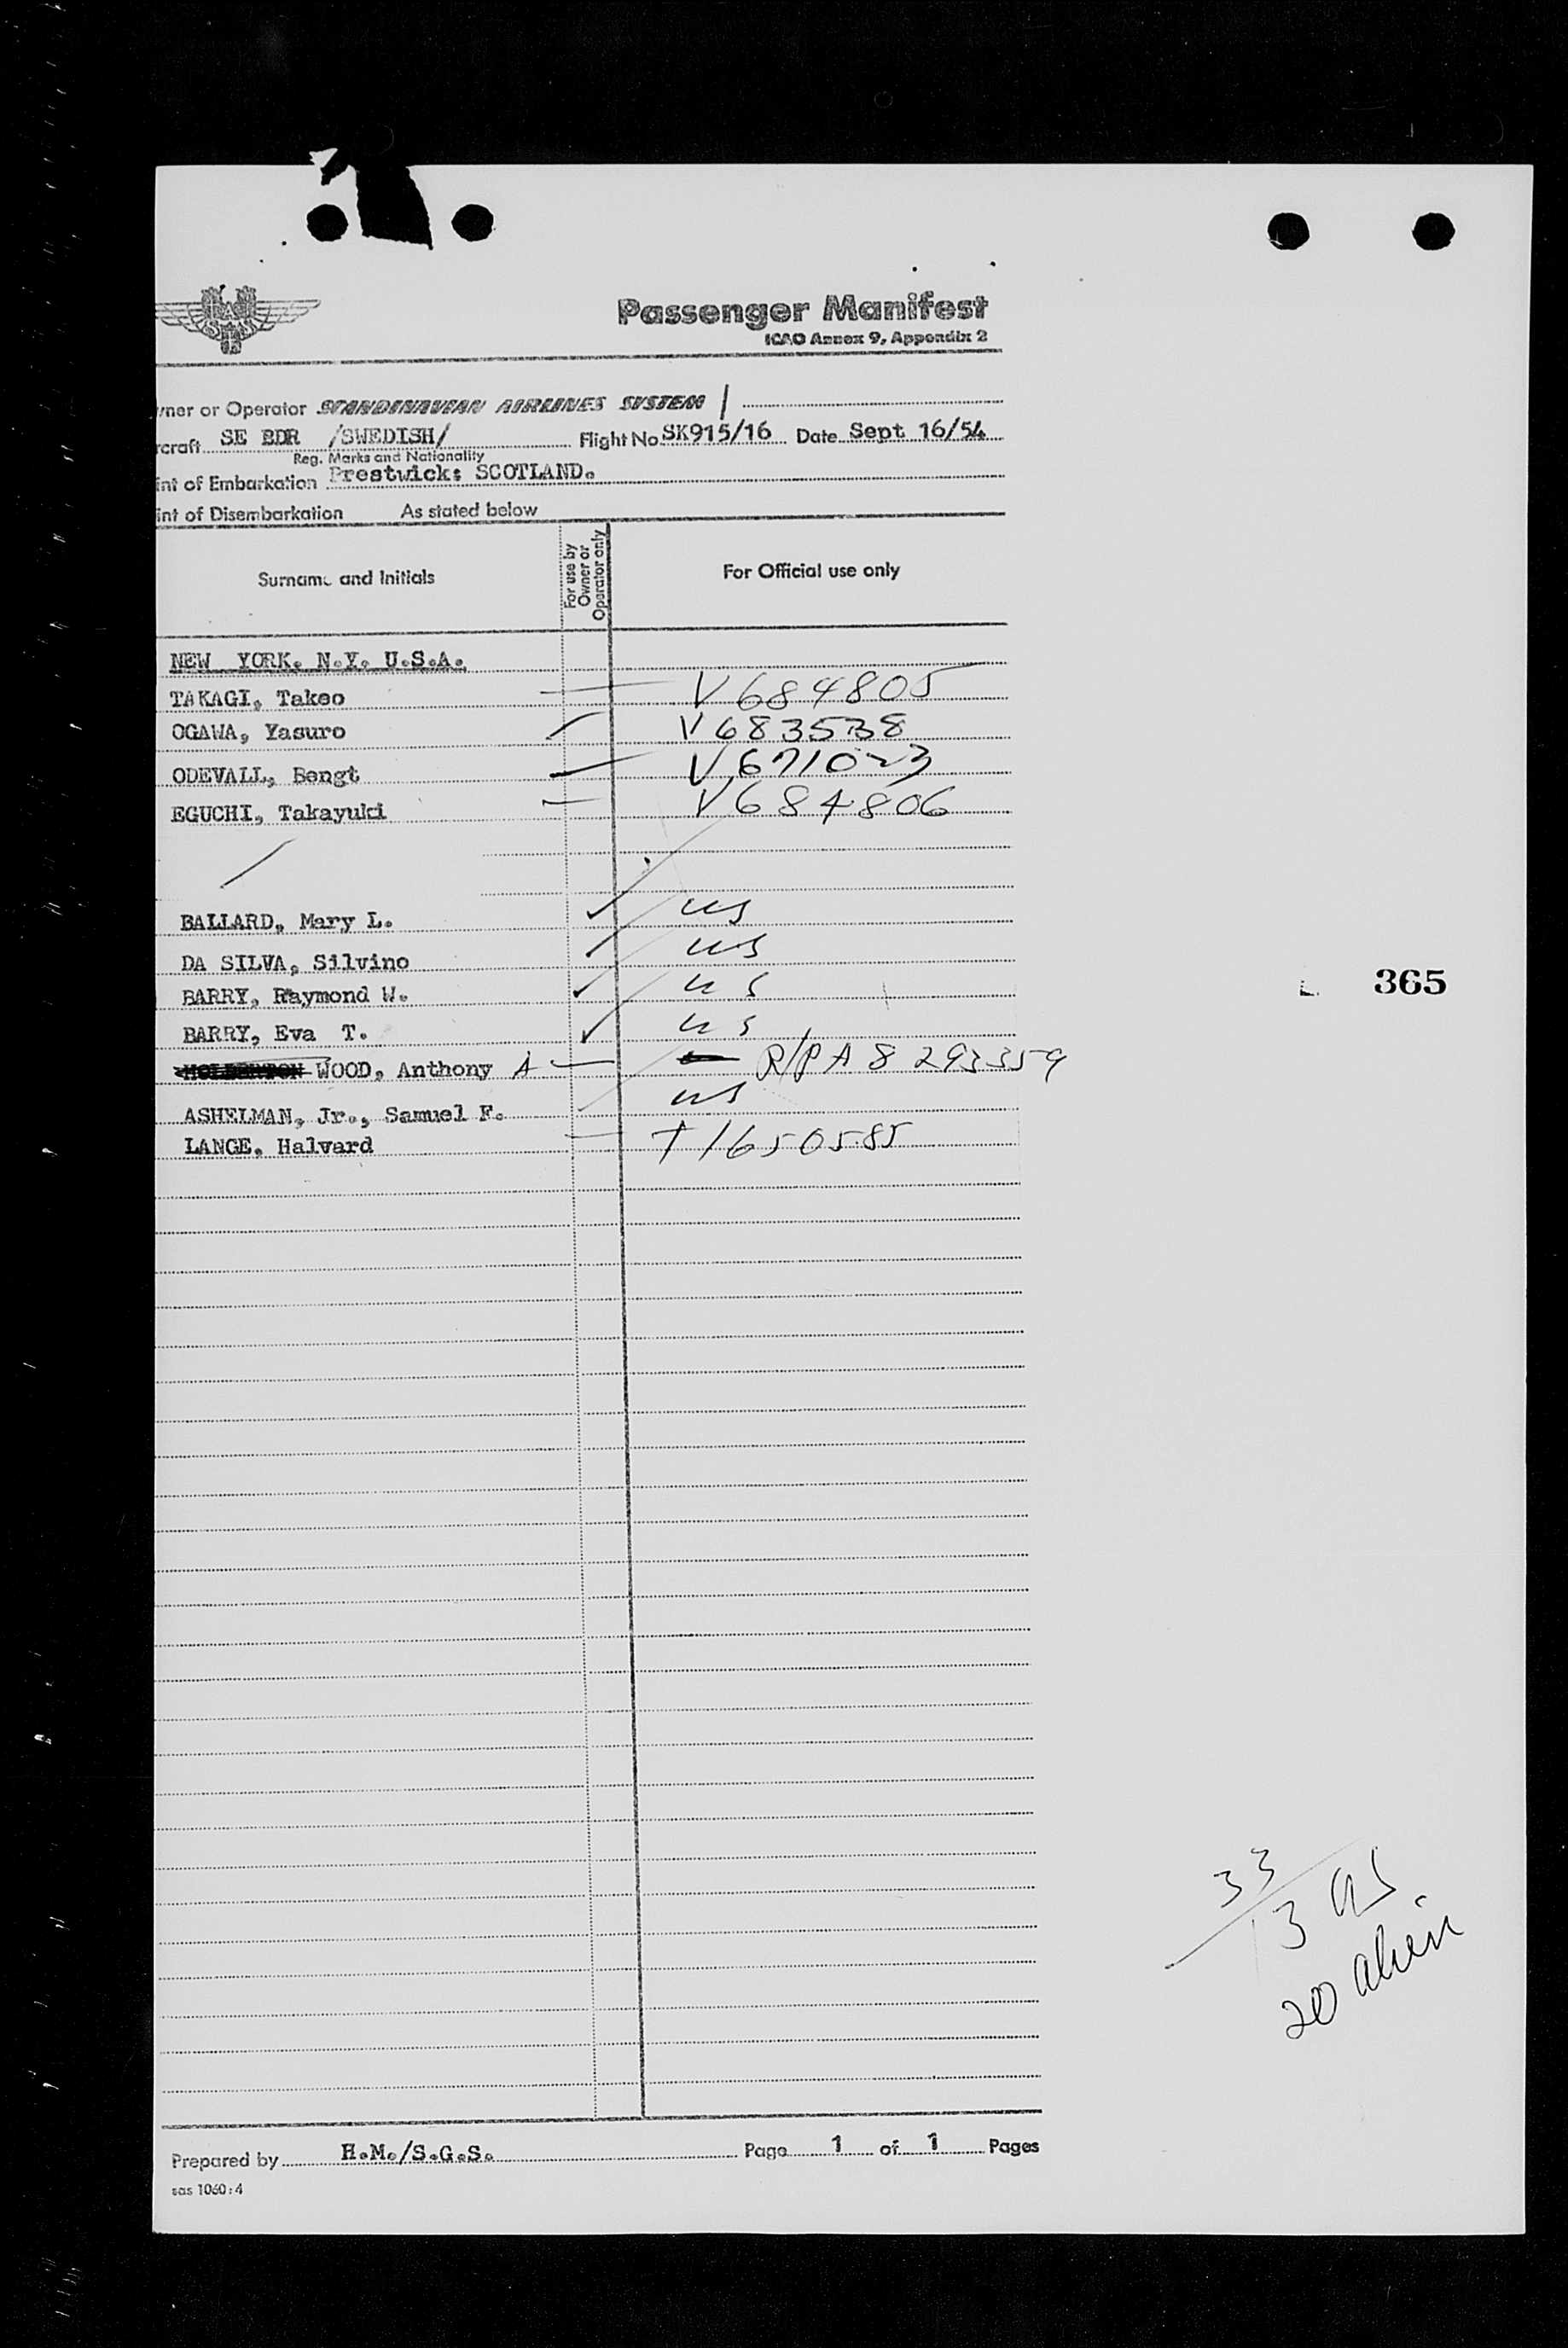 Passenger Manifest
ICAO Annex 9, Appendix 2
wner or Operator SCANDINAVIAN AIRLINES SYSTEM
rcraft SE BDR /SWEDISH/ Flight No SK915/16 Date Sept 16/54
Reg. Marks and Nationality
int of Embarkation Prestwick: SCOTLAND.
int of Disembarkation As stated below
Surname and Initials For use by Owner or Operator only For Official use only
NEW YORK. N.Y. U.S.A.
TAKAGI, Takeo V684805
OGAWA, Yasuro V683538
ODEVALL, Bengt V671023
EGUCHI, Takayuki V684806
BALLARD, Mary L. us
DA SILVA, Silvino us
BARRY, Raymond W. us
365
BARRY, Eva T. us
WOOD, Anthony A R/P A 8 293359
ASHELMAN, Jr., Samuel F. us
LANGE, Halvard T 1650585
33
13 us
20 alien
Prepared by H.M./S.G.S. Page 1 of 1 Pages
sas 1060:4